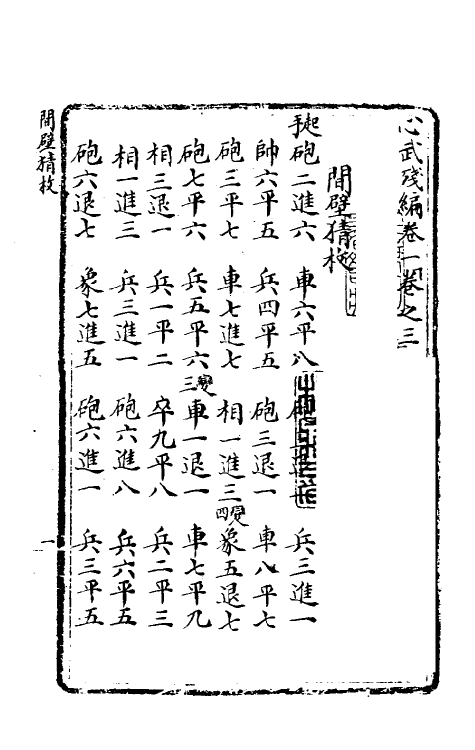 心武殘編卷一卷之三
間壁猜枚
起手砲二進六 車六平八 兵三進一
帥六平五 兵四平五 砲三退一 車八平七
砲三平七 車七進七 相一進三 四變象五退七
砲七平六 兵五平六 三變車一退一 車七平九
相三退一 兵一平二 卒九平八 兵二平三
相一進三 兵三進一 砲六進八 兵六平五
砲六退七 象七進五 砲六進一 兵三平五
間壁猜枚
一